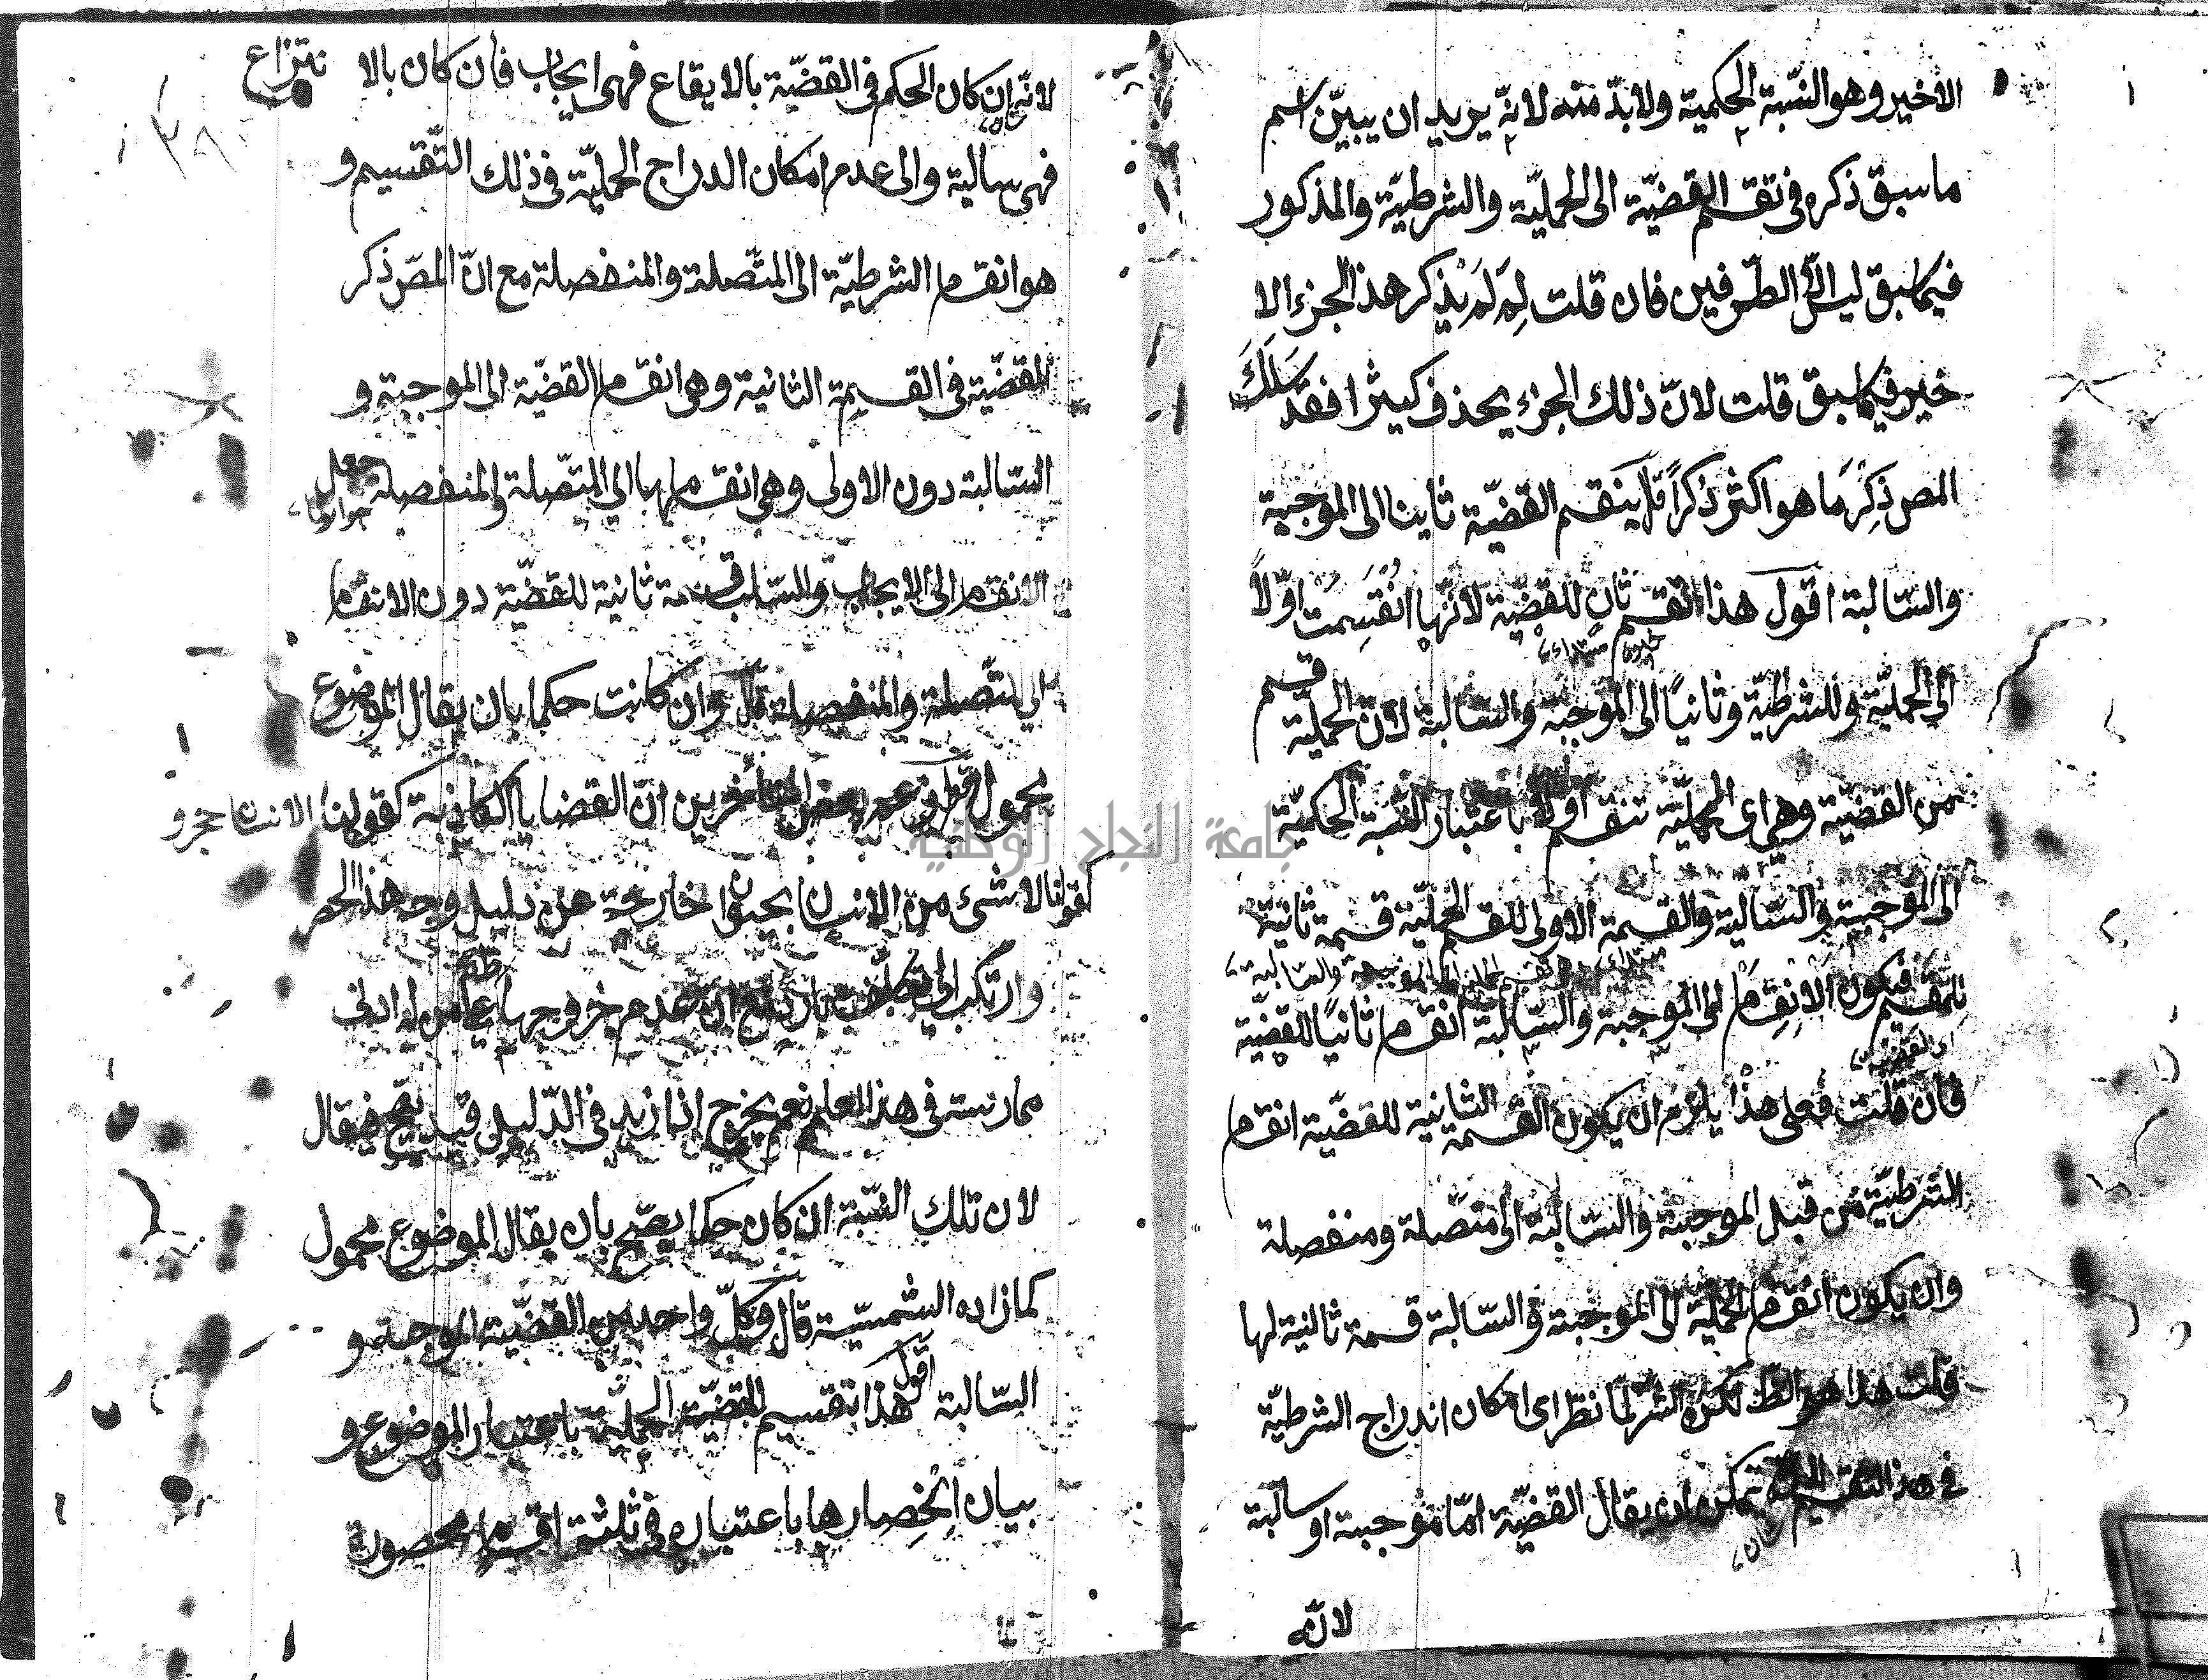 الاخير وهو النسبة الحكمية ولا بدّ منه لانّه يريد ان يبيّن اسم
ما سبق ذكره في تقسيم القضيّة الى الحمليّة والشرطيّة والمذكور
فيما سبق ليس الّا الطّرفين فان قلت لِمَ لَمْ يذكر هذا الجزء الا
خير فيما سبق قلت لانّ ذلك الجزء يحذف كثيرا فقد سَلَكَ
المص ذِكْرَ ما هو اكثر ذكراً قال ينقسم القضيّة ثانيا الى الموجبة
والسّالبة اقول هذا تقسيم ثانٍ للقضيّة لانّها انْقَسِمَتْ اوّلاً
الى الحمليّة والشرطيّة وثانياً الى الموجبة والسّالبة لانّ الحمليّة قسم
من القضيّة وهي اى الحمليّة تنقسم اولا باعتبار النّسبة الحكميّة
الى الموجبة والسّالبة والقسمة الاولى للقسم الحمليّة قسمة ثانية
للمقسم فيكون الانقسام الى الموجبة والسّالبة انقساما ثانياً للقضيّة
اى القضية
فان قلت فعلى هذا يلزم ان يكون القسمة الثانية للقضيّة انقسام
الشرطيّة من قبل الموجبة والسّالبة الى متّصلة ومنفصلة
وان يكون انقسام الحمليّة الى الموجبة والسّالبة قسمة ثالثة لها
قلت هذا هو الظ لكن الش لمّا نظر اى امكان اندراج الشرطيّة
في هذا التقسيم يمكن ان يقال القضيّة امّا موجبة او سالبة
لانّه
لانّه ان كان الحكم في القضيّة بالايقاع فهى ايجاب فان كان بالا نتزاع
فهى سالبة والى عدم امكان اندراج الحمليّة في ذلك التّقسيم و
هو انقسام الشرطيّة الى المتّصلة والمنفصلة مع انّ المص ذكر
القضيّة في القسمة الثانية وهى انقسام القضيّة الى الموجبة و
السّالبة دون الاولى وهى انقسامها الى المتّصلة والمنفصلة جعل
الانقسام الى الايجاب والسّلب قسمة ثانية للقضيّة دون الانقسام
الى المتّصلة والمنفصلة قال وان كانت حكما بان يقال الموضوع
محمول اقول زعم بعض المتأخرين انّ القضايا الكاذبة كقولنا الانسان حجر و
كقولنا لا شئ من الانسان بحيوان خارجة عن دليل وجه هذا الحصر
وارتكب الى عدم خروجها على من له ادنى
ممارسة في هذا العلم نعم يخرج اذا زيد في الدّليل قيد يصح فيقال
لان تلك النّسبة ان كان حكما يصح بان يقال الموضوع محمول
كما زاده الشمسيّة قال وكلّ واحد من القضيّة الموجبة و
السّالبة اقول هذا تقسيم للقضيّة الحمليّة باعتبار الموضوع و
بيان اِنْحِصارها باعتباره في ثلثة اقسام محصورة